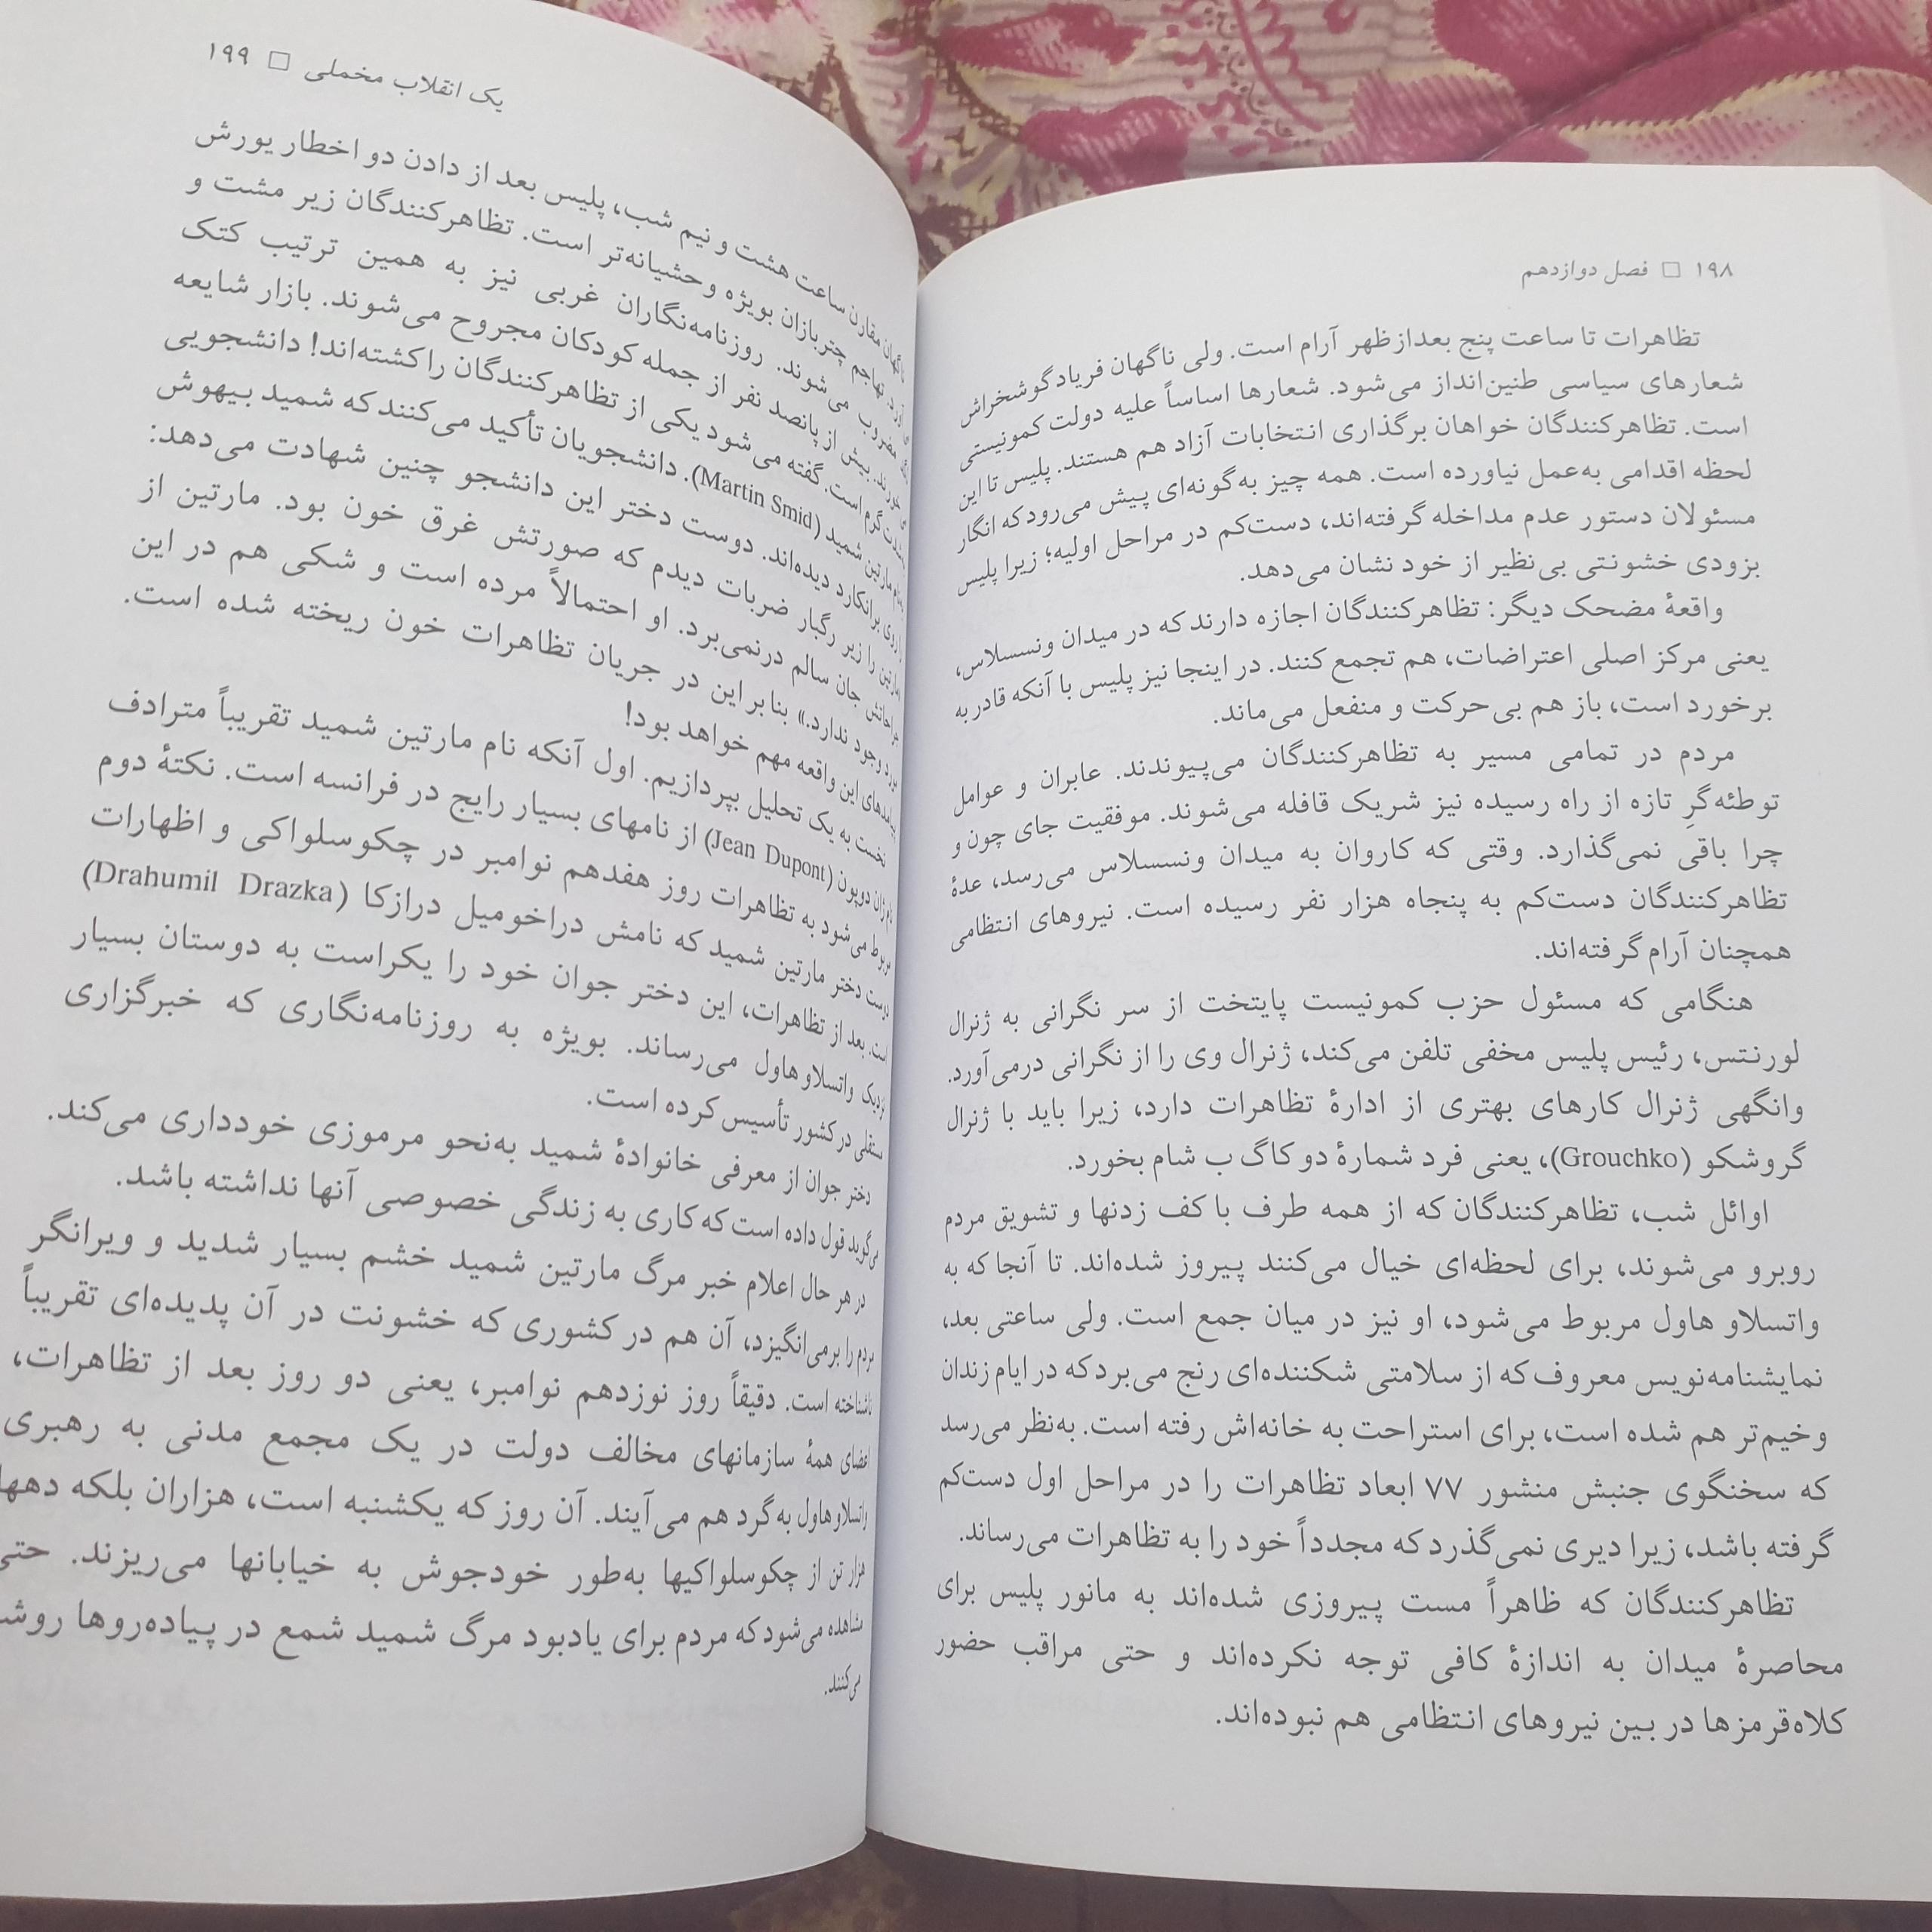 ۱۹۸ □ فصل دوازدهم
تظاهرات تا ساعت پنج بعدازظهر آرام است. ولی ناگهان فریاد گوشخراش
شعارهای سیاسی طنین‌انداز می‌شود. شعارها اساساً علیه دولت کمونیستی
است. تظاهرکنندگان خواهان برگذاری انتخابات آزاد هم هستند. پلیس تا این
لحظه اقدامی به‌عمل نیاورده است. همه چیز به‌گونه‌ای پیش می‌رود که انگار
مسئولان دستور عدم مداخله گرفته‌اند، دست‌کم در مراحل اولیه؛ زیرا پلیس
بزودی خشونتی بی‌نظیر از خود نشان می‌دهد.
واقعهٔ مضحک دیگر: تظاهرکنندگان اجازه دارند که در میدان ونسسلاس،
یعنی مرکز اصلی اعتراضات، هم تجمع کنند. در اینجا نیز پلیس با آنکه قادر به
برخورد است، باز هم بی‌حرکت و منفعل می‌ماند.
مردم در تمامی مسیر به تظاهرکنندگان می‌پیوندند. عابران و عوامل
توطئه‌گرِ تازه از راه رسیده نیز شریک قافله می‌شوند. موفقیت جای چون و
چرا باقی نمی‌گذارد. وقتی که کاروان به میدان ونسسلاس می‌رسد، عدهٔ
تظاهرکنندگان دست‌کم به پنجاه هزار نفر رسیده است. نیروهای انتظامی
همچنان آرام گرفته‌اند.
هنگامی که مسئول حزب کمونیست پایتخت از سر نگرانی به ژنرال
لورنتس، رئیس پلیس مخفی تلفن می‌کند، ژنرال وی را از نگرانی درمی‌آورد.
وانگهی ژنرال کارهای بهتری از ادارهٔ تظاهرات دارد، زیرا باید با ژنرال
گروشکو (Grouchko)، یعنی فرد شمارهٔ دو کاگ ب شام بخورد.
اوائل شب، تظاهرکنندگان که از همه طرف با کف زدنها و تشویق مردم
روبرو می‌شوند، برای لحظه‌ای خیال می‌کنند پیروز شده‌اند. تا آنجا که به
واتسلاو هاول مربوط می‌شود، او نیز در میان جمع است. ولی ساعتی بعد،
نمایشنامه‌نویس معروف که از سلامتی شکننده‌ای رنج می‌برد که در ایام زندان
وخیم‌تر هم شده است، برای استراحت به خانه‌اش رفته است. به‌نظر می‌رسد
که سخنگوی جنبش منشور ۷۷ ابعاد تظاهرات را در مراحل اول دست‌کم
گرفته باشد، زیرا دیری نمی‌گذرد که مجدداً خود را به تظاهرات می‌رساند.
تظاهرکنندگان که ظاهراً مست پیروزی شده‌اند به مانور پلیس برای
محاصرهٔ میدان به اندازهٔ کافی توجه نکرده‌اند و حتی مراقب حضور
کلاه‌قرمزها در بین نیروهای انتظامی هم نبوده‌اند.
یک انقلاب مخملی □ ۱۹۹
ناگهان مقارن ساعت هشت و نیم شب، پلیس بعد از دادن دو اخطار یورش
آورد. تهاجم چتربازان بویژه وحشیانه‌تر است. تظاهرکنندگان زیر مشت و
مضروب می‌شوند. روزنامه‌نگاران غربی نیز به همین ترتیب کتک
خورند. بیش از پانصد نفر از جمله کودکان مجروح می‌شوند. بازار شایعه
شدت گرم است. گفته می‌شود یکی از تظاهرکنندگان را کشته‌اند! دانشجویی
نام مارتین شمید (Martin Smid). دانشجویان تأکید می‌کنند که شمید بیهوش
روی برانکارد دیده‌اند. دوست دختر این دانشجو چنین شهادت می‌دهد:
مارتین را زیر رگبار ضربات دیدم که صورتش غرق خون بود. مارتین از
جراحاتش جان سالم درنمی‌برد. او احتمالاً مرده است و شکی هم در این
مورد وجود ندارد.» بنابراین در جریان تظاهرات خون ریخته شده است.
پیامدهای این واقعه مهم خواهد بود!
نخست به یک تحلیل بپردازیم. اول آنکه نام مارتین شمید تقریباً مترادف
نام ژان دوپون (Jean Dupont) از نامهای بسیار رایج در فرانسه است. نکتهٔ دوم
مربوط می‌شود به تظاهرات روز هفدهم نوامبر در چکوسلواکی و اظهارات
دوست دختر مارتین شمید که نامش دراخومیل درازکا (Drahumil Drazka)
است. بعد از تظاهرات، این دختر جوان خود را یکراست به دوستان بسیار
نزدیک واتسلاو هاول می‌رساند. بویژه به روزنامه‌نگاری که خبرگزاری
مستقلی در کشور تأسیس کرده است.
دختر جوان از معرفی خانوادهٔ شمید به‌نحو مرموزی خودداری می‌کند.
می‌گوید قول داده است که کاری به زندگی خصوصی آنها نداشته باشد.
در هر حال اعلام خبر مرگ مارتین شمید خشم بسیار شدید و ویرانگر
مردم را برمی‌انگیزد، آن هم در کشوری که خشونت در آن پدیده‌ای تقریباً
ناشناخته است. دقیقاً روز نوزدهم نوامبر، یعنی دو روز بعد از تظاهرات،
اعضای همهٔ سازمانهای مخالف دولت در یک مجمع مدنی به رهبری
واتسلاو هاول به گرد هم می‌آیند. آن روز که یکشنبه است، هزاران بلکه دهها
هزار تن از چکوسلواکیها به‌طور خودجوش به خیابانها می‌ریزند. حتی
مشاهده می‌شود که مردم برای یادبود مرگ شمید شمع در پیاده‌روها
می‌کنند.